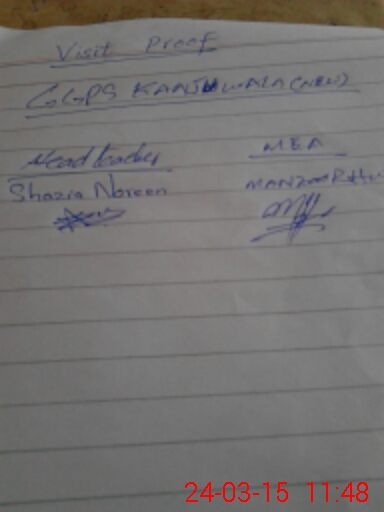 Visit Proof
GGPS KANJUWALA (NEW)
Head teacher
MEA
Shazia Noreen
24-03-15 11:48